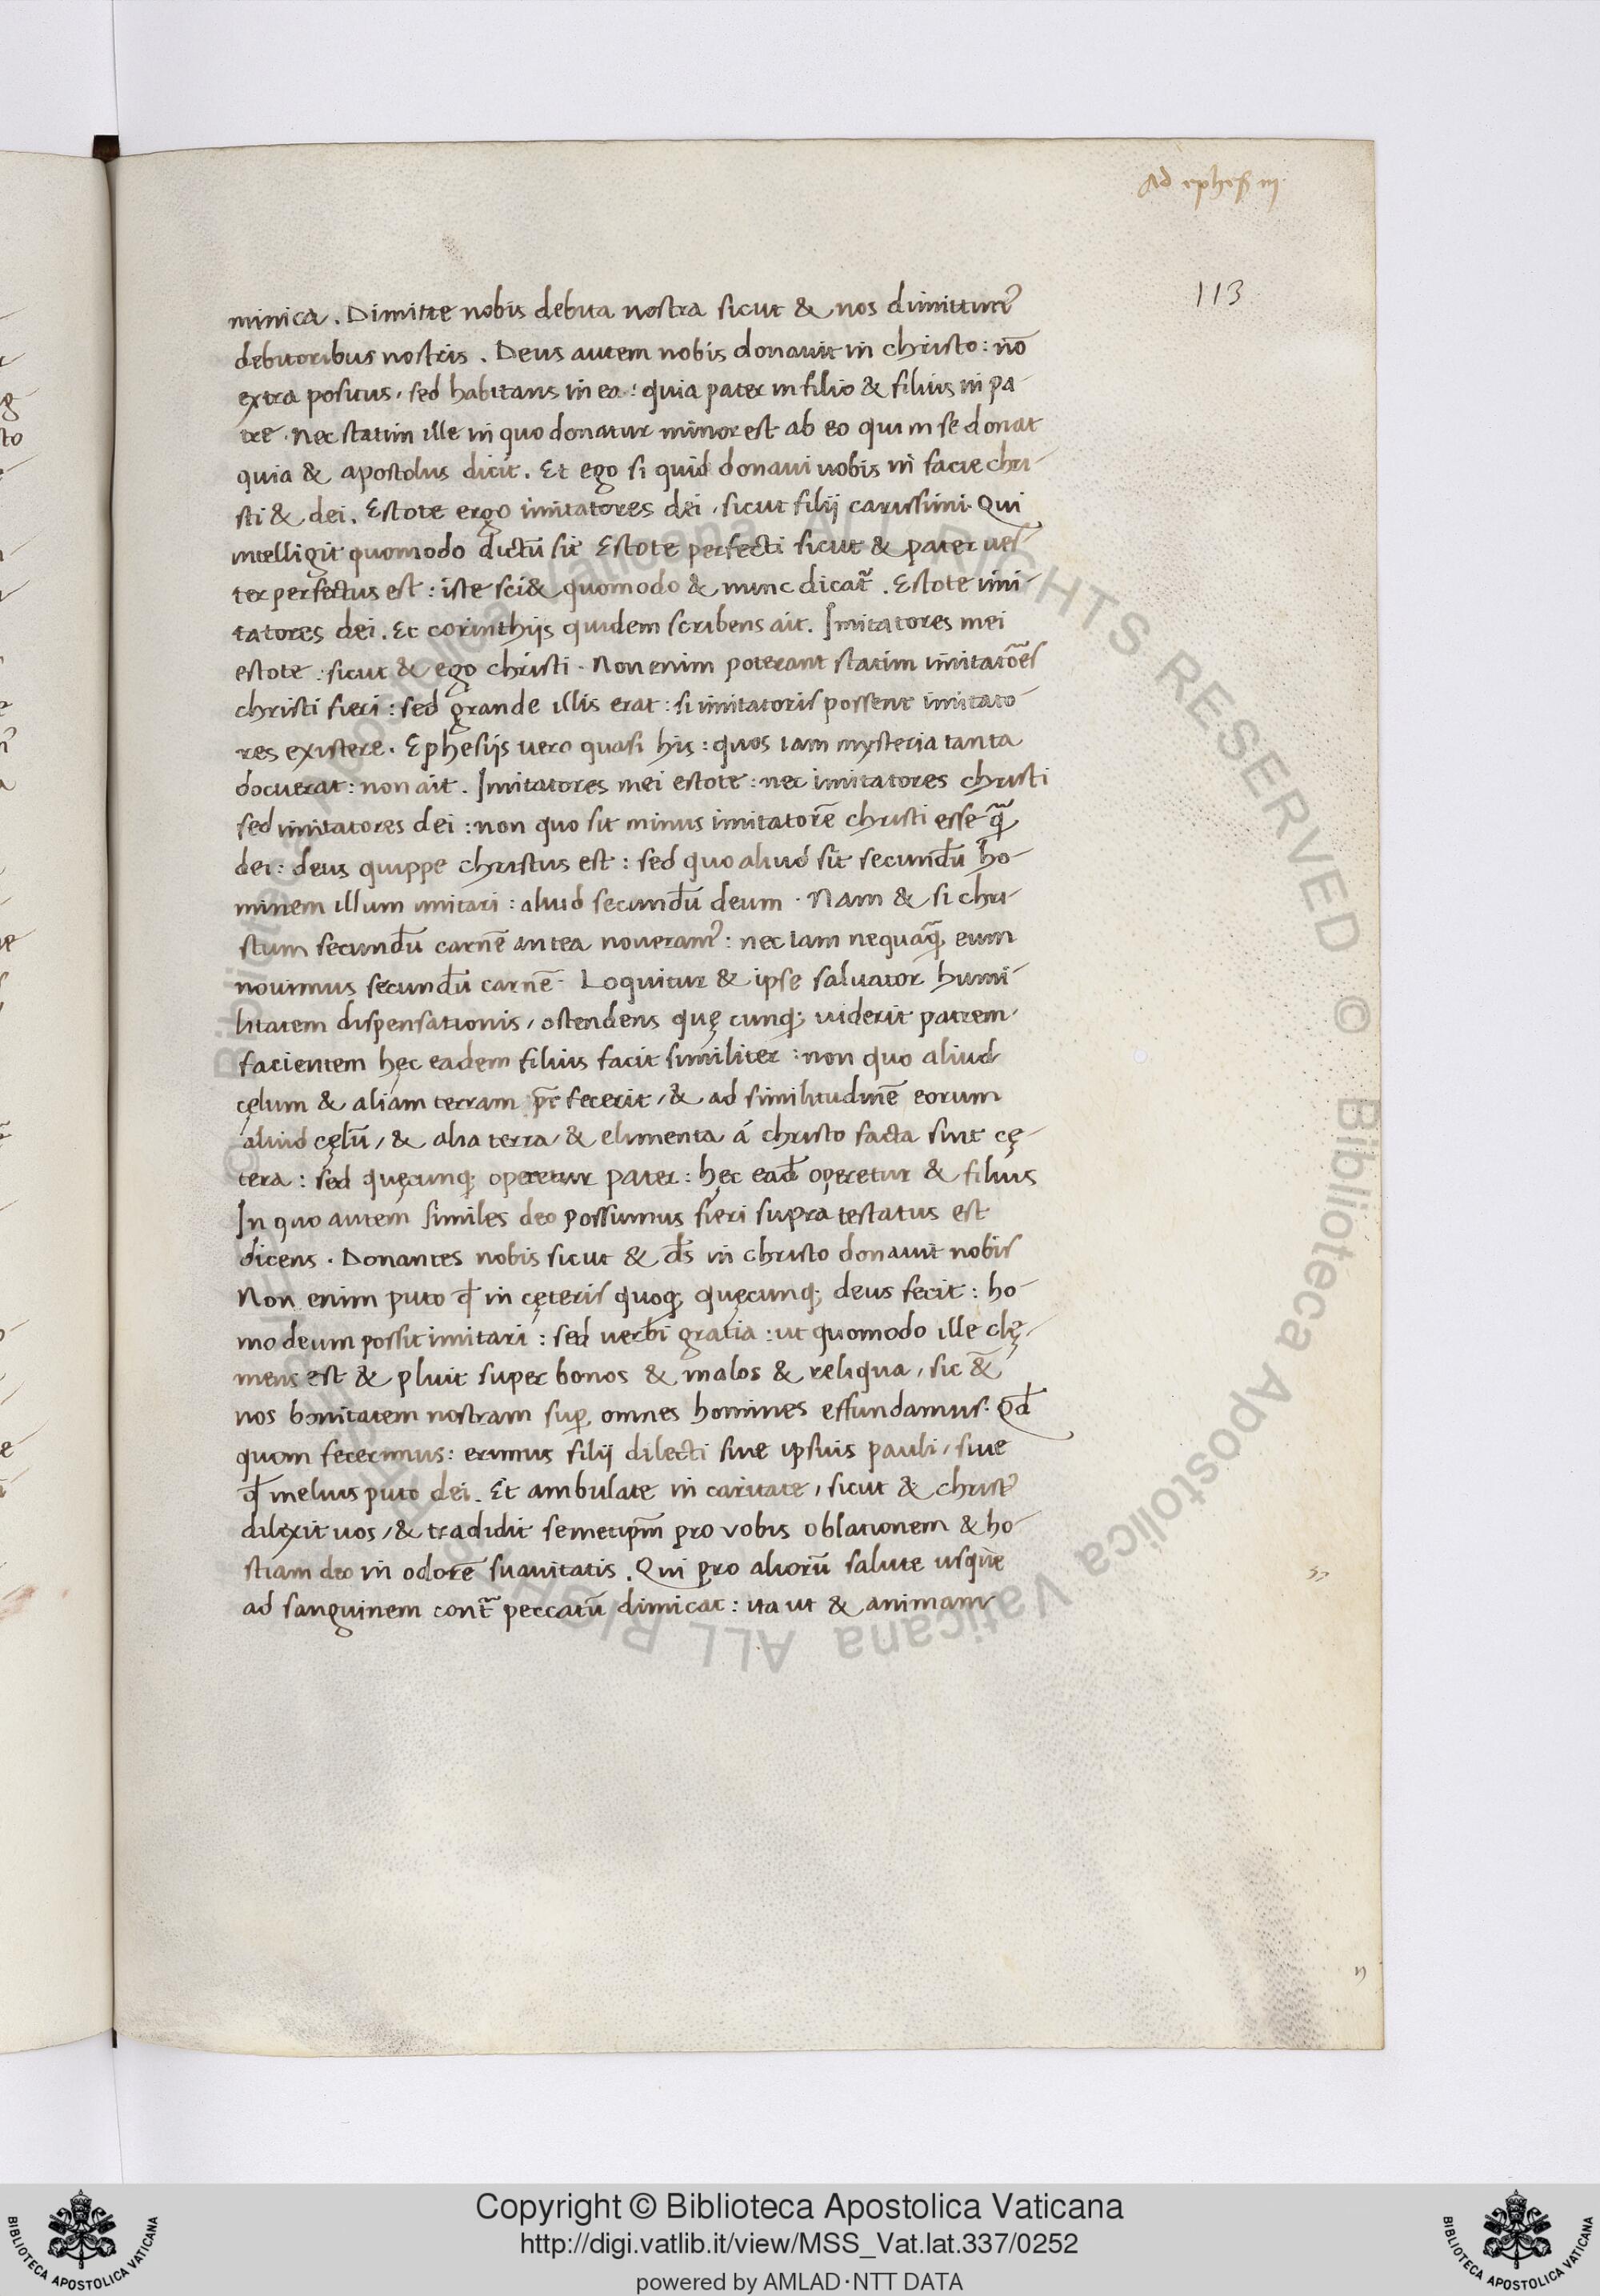 Ad ephes̄ iii
113
minica. Dimitte nobis debita nostra sicut & nos dimittimꝰ
debitoribus nostris. Deus autem nobis donauit in christo: nō
extra positus, sed habitans in eo: quia pater in filio & filius in pa-
tre. Nec statim ille in quo donatur minor est ab eo qui in se donat
quia & apostolus dicit. Et ego si quid donaui uobis in facie chri-
sti & dei. Estote ergo imitatores dei, sicut filij carissimi. Qui
intelligit quomodo dictū sit Estote perfecti sicut & pater ues-
ter perfectus est: iste sci& quomodo & nunc dicat᷑. Estote imi-
tatores dei. Et corinthijs quidem scribens ait. Imitatores mei
estote: sicut & ego christi. Non enim poterant statim imitatōes
christi fieri: sed grande illis erat: si imitatoris possent imitato-
res existere. Ephesijs uero quasi his: quos iam mysteria tanta
docuerat: non ait. Imitatores mei estote: nec imitatores christi
sed imitatores dei: non quo sit minus imitatorē christi esse qᷓ
dei: deus quippe christus est: sed quo aliud sit secundū ho-
minem illum imitari: aliud secundū deum. Nam & si chri-
stum secundū carnē antea noueramꝰ: nec iam nequaqᷓ eum
nouimus secundū carnē. Loquitur & ipse saluator humi-
litatem dispensationis, ostendens quę cunqꝫ uiderit patrem
facientem hęc eadem filius facit similiter: non quo aliud
cęlum & aliam terram pr̄ fecerit, & ad similitudinē eorum
aliud cęlū, & alia terra, & elimenta á christo facta sint cę-
tera: sed quęcunqꝫ operetur pater: hęc ead̄ operetur & filius
In quo autem similes deo possumus fieri supra testatus est
dicens. Donantes nobis sicut & d̄s in christo donauit nobis
Non enim puto qd̄ in cęteris quoqꝫ quęcunqꝫ deus fecit: ho-
mo deum possit imitari: sed uerbi gratia: ut quomodo ille clę-
mens est & pluit super bonos & malos & reliqua, sic &
nos bonitatem nostram suꝑ omnes homines effundamus. Qd̄
quom fecerimus: erimus filij dilecti siue ipsius pauli, siue
qd̄ melius puto dei. Et ambulate in caritate, sicut & christꝰ
dilexit uos, & tradidit semetip̄m pro vobis oblationem & ho-
stiam deo in odorē suauitatis. Qui pro aliorū salute usque
ad sanguinem cont᷑ peccatū dimicat: ita ut & animam
© Biblioteca Apostolica Vaticana ALL RIGHTS RESERVED © Biblioteca Apostolica Vaticana ALL RIGHTS RESERVED
Copyright © Biblioteca Apostolica Vaticana
http://digi.vatlib.it/view/MSS_Vat.lat.337/0252
powered by AMLAD·NTT DATA
BIBLIOTECA APOSTOLICA VATICANA
BIBLIOTECA APOSTOLICA VATICANA